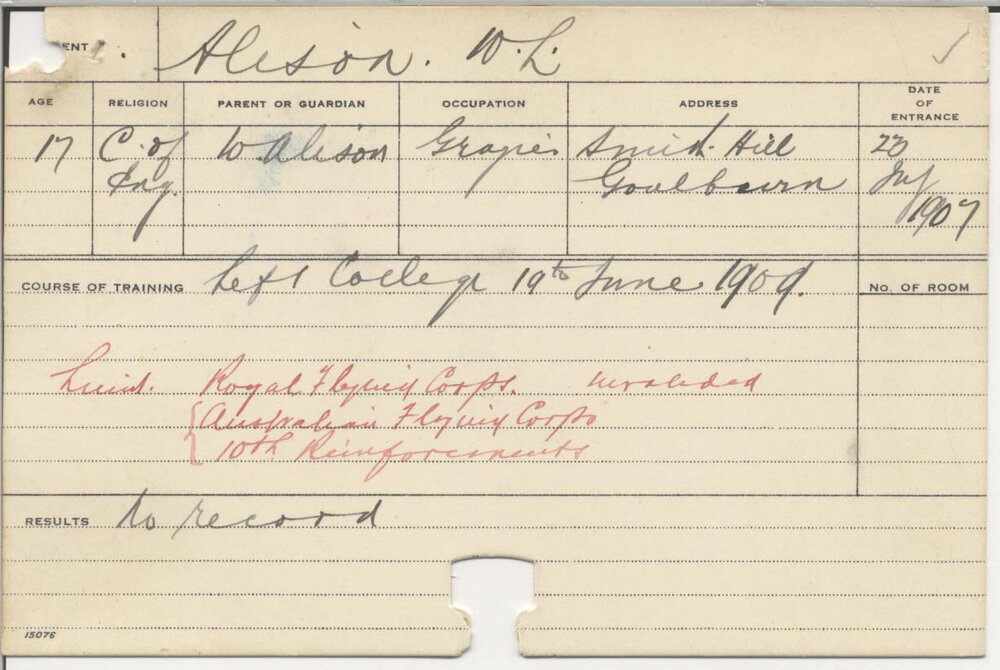 ENT Alison. W. L.
AGE RELIGION PARENT OR GUARDIAN OCCUPATION ADDRESS DATE OF ENTRANCE
17 C. of W. Alison Grazier Smith Hill 23
Eng. Goulbourn July
1907
COURSE OF TRAINING Left College 19th June 1909. No. OF ROOM
Lieut. Royal Flying Corps. invalided
Australian Flying Corps
10th Reinforcements
RESULTS No record
15076